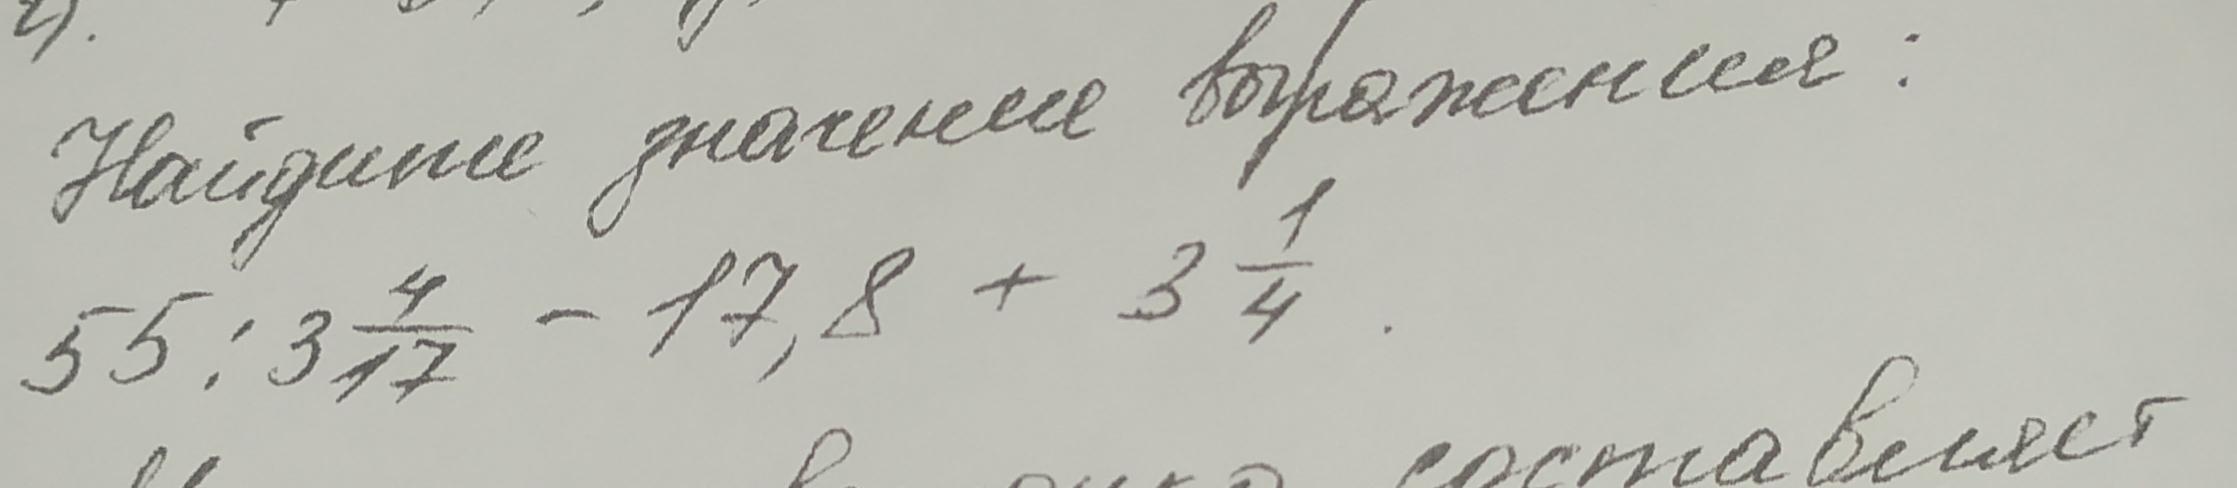 2).
Найдите значение выражения:
55 : 3 4/17 - 17,8 + 3 1/4.
составляет